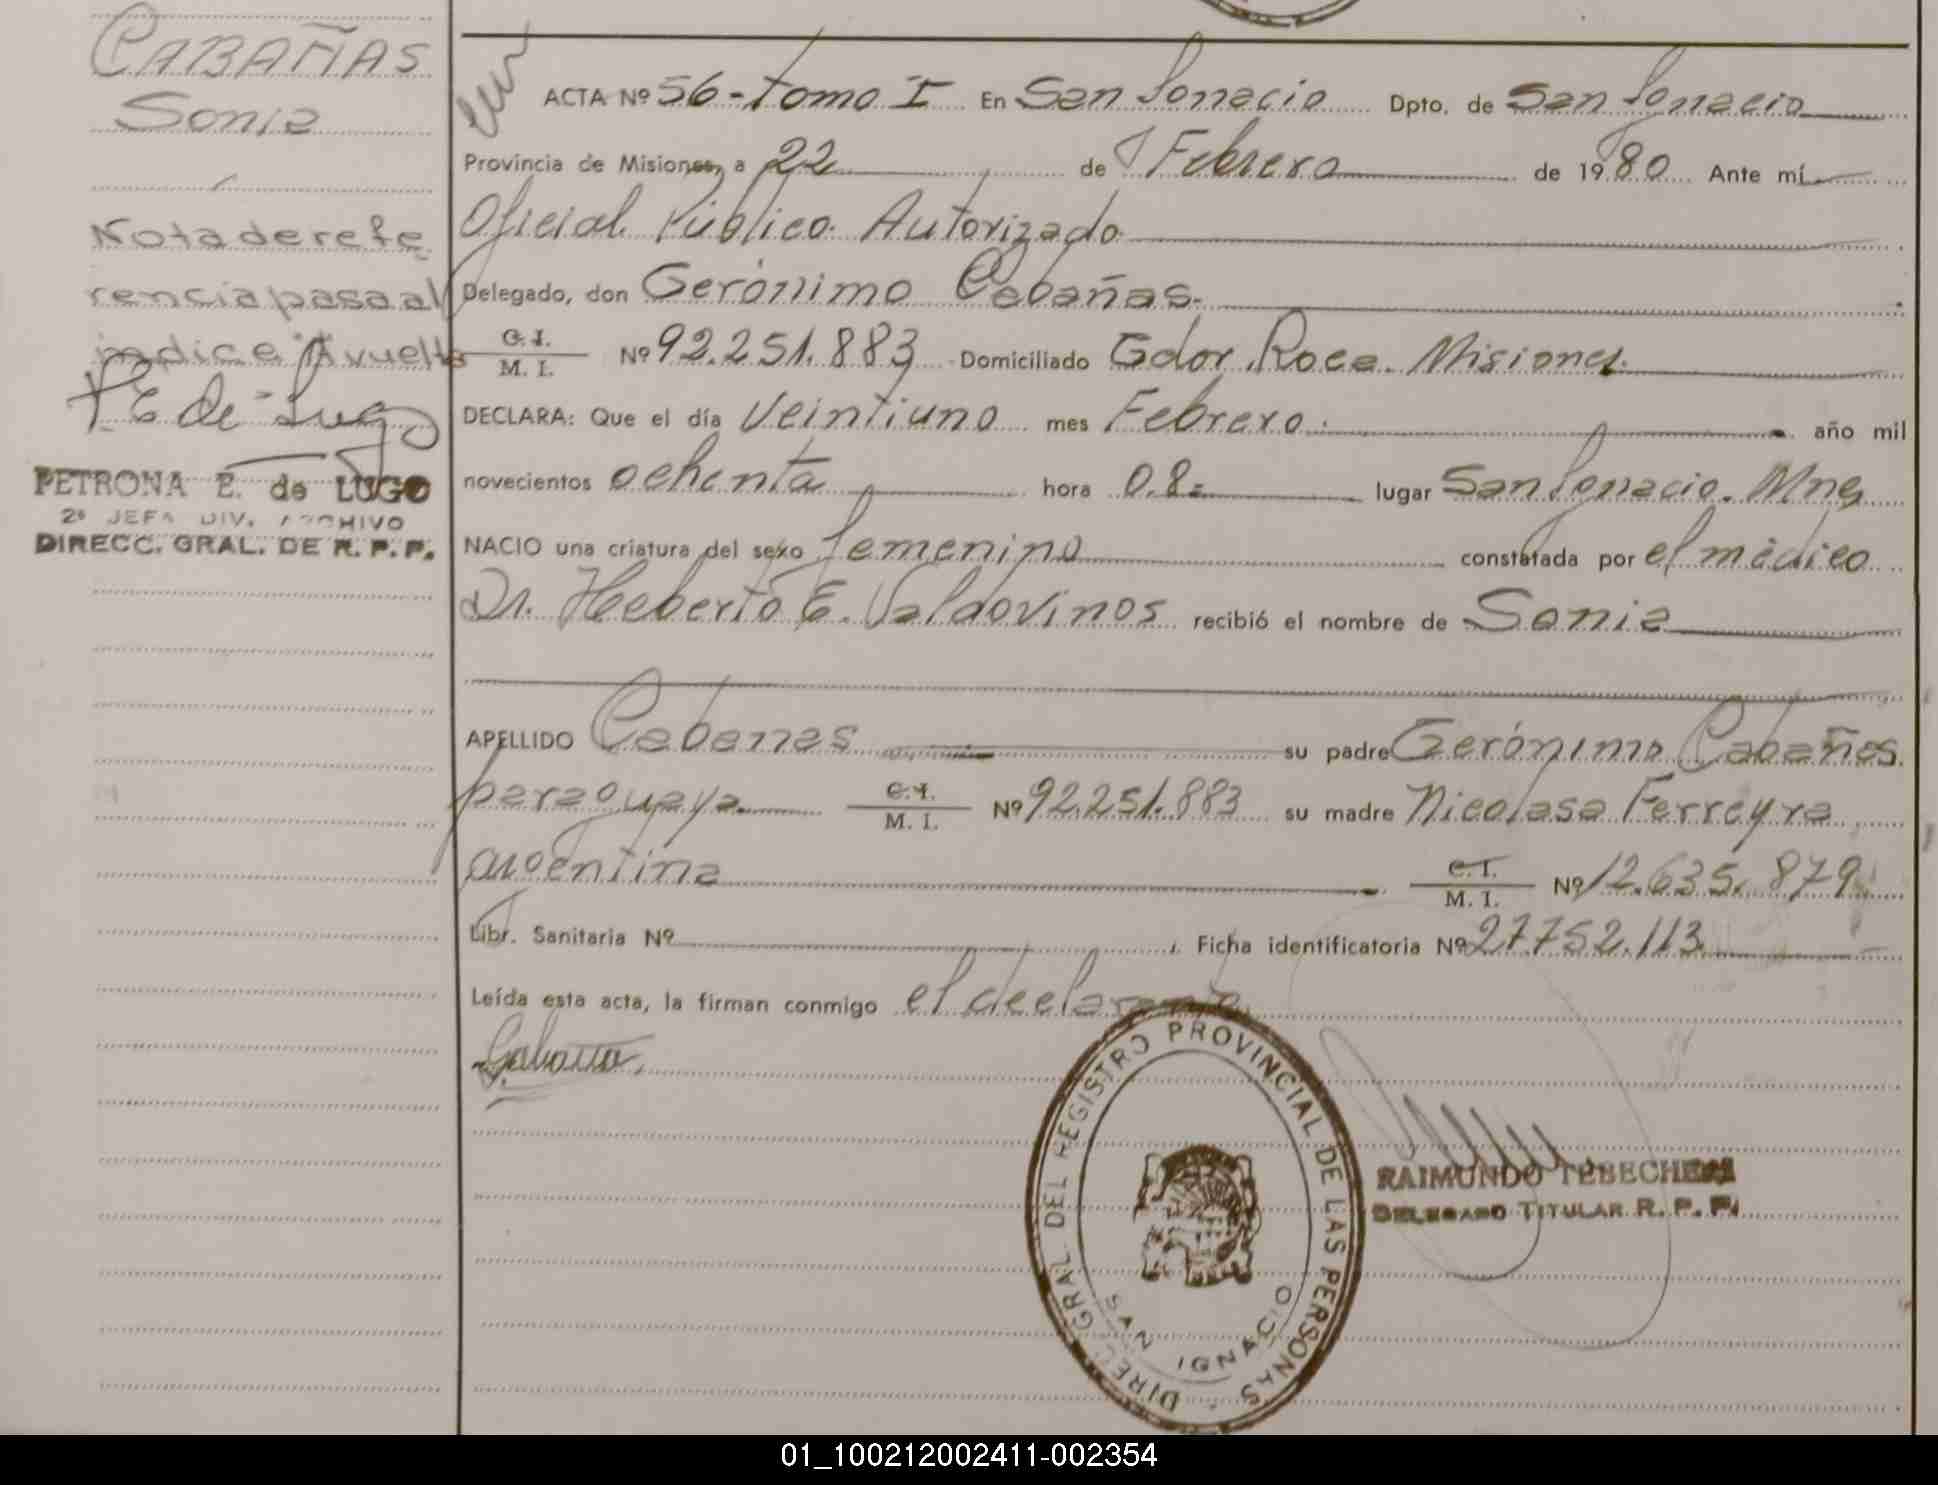 CABAÑAS
Sonia
Nota de refe
rencia pasa al
indice a vuelta
P E de Lugo
PETRONA E. de LUGO
2ª JEFA DIV. ARCHIVO
DIRECC. GRAL. DE R. P. P.
ACTA Nº 56 - tomo I En San Ignacio Dpto. de San Ignacio
Provincia de Misiones, a 22 de Febrero de 1980 Ante mí
Oficial Público Autorizado
Delegado, don Gerónimo Cabañas.
C. I.
M. I. Nº 92.251.883 Domiciliado Gdor Roca. Misiones.
DECLARA: Que el día Veintiuno mes Febrero. año mil
novecientos ochenta hora 0.8= lugar San Ignacio. Mnes
NACIO una criatura del sexo femenino constatada por el médico
Dr. Heberto E. Valdovinos recibió el nombre de Sonia
APELLIDO Cabanas su padre Gerónimo Cabañas.
paraguaya C. I.
M. I. Nº 92.251.883 su madre Nicolasa Ferreyra
argentina C. I.
M. I. Nº 12.635.879
Libr. Sanitaria Nº Ficha identificatoria Nº 27752.113
Leída esta acta, la firman conmigo el declarante
DIREC. GRAL. DEL REGISTRO PROVINCIAL DE LAS PERSONAS
SAN IGNACIO
RAIMUNDO
DELEGADO TITULAR R. P. P.
01_100212002411-002354